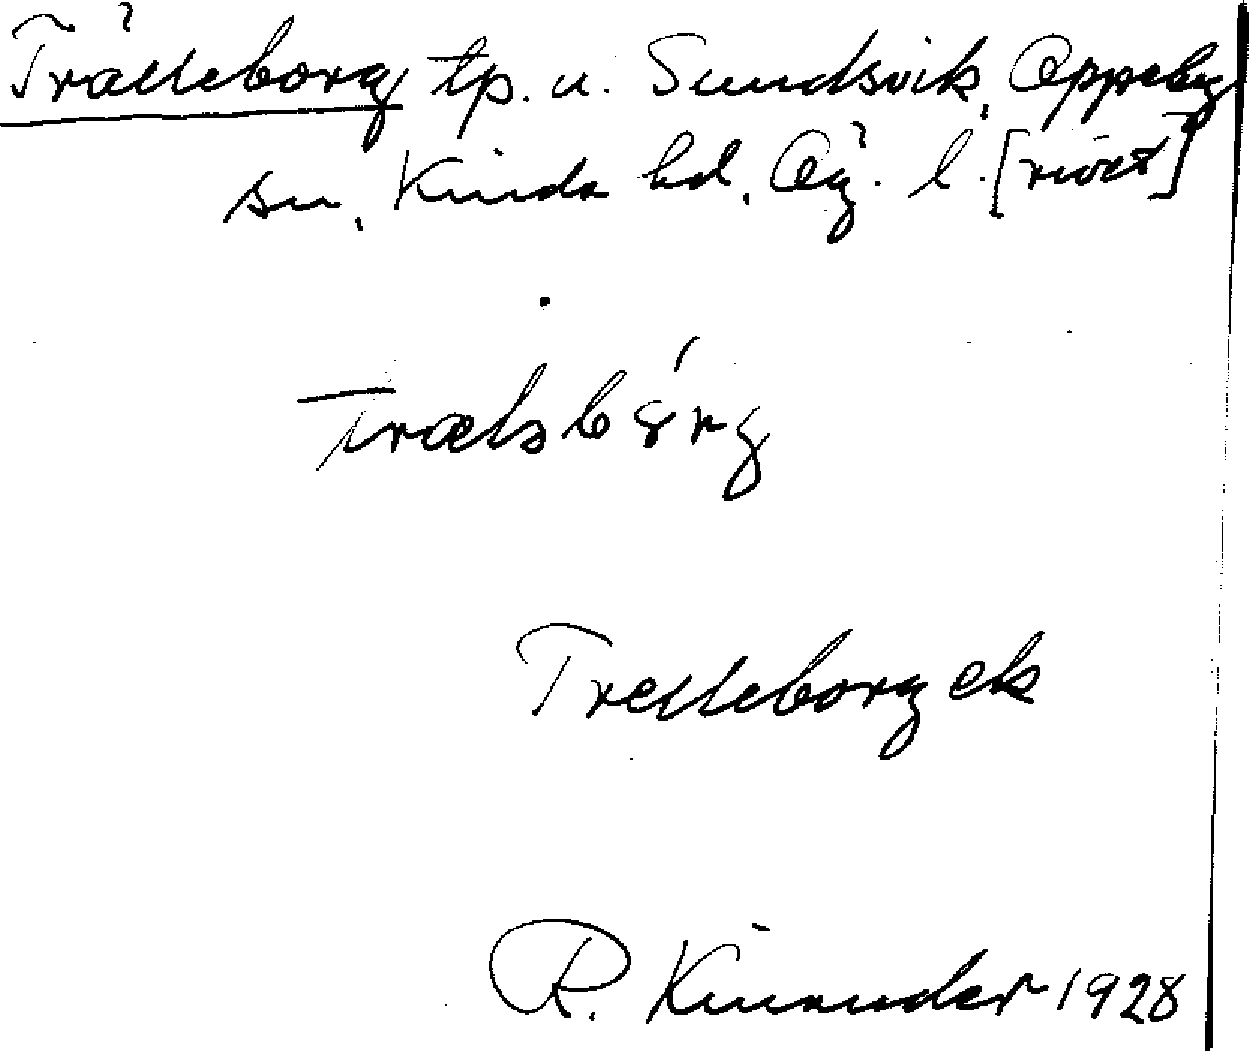 Trälleborg tp. u. Sundsvik, Oppeby
sn, Kinda hd, Ög. l. [rivet]
Trælsbǫrg
Trelleborg ek
R. Kinnander 1928